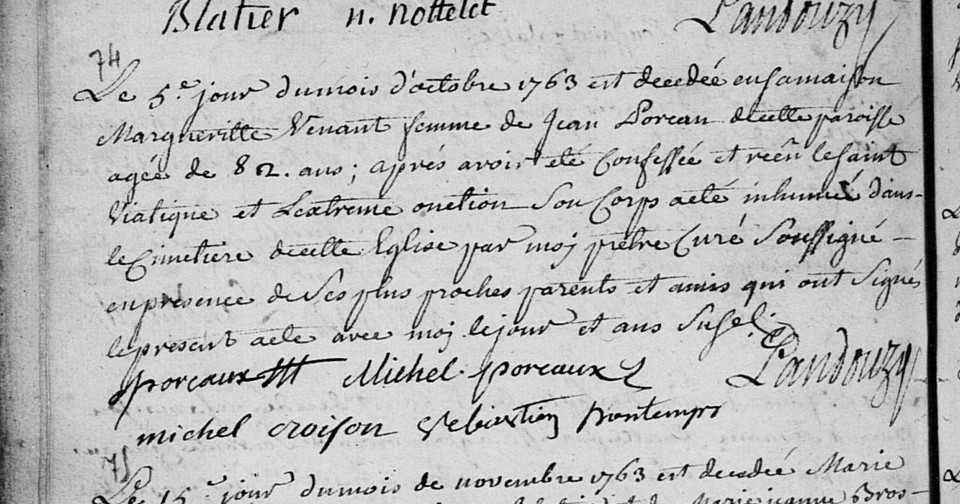 Blatier n. nottelet Landouzy
74
Le 5.e jour dumois d'octobre 1763 est decedée ensamaison
Margueritte Venant femme de Jean Porean decette paroisse
agée de 82. ans; aprés avoir eté Confessée et reçû le saint
Viatique et Lextreme onction Son Corps aeté inhumé dans-
le Cimetiere decette Eglise par moj prêtre Curé Soussigné-
enpresence de Ses plus proches parents et amis qui ont Signés
lepresent acte avec moj. lejour et ans Susd.
porcaux Michel porceaux Landouzy
michel croison Sebastien printemps
75
Le 15.e jour dumois de novembre 1763 est decedée Marie
Marie jeanne Bros-